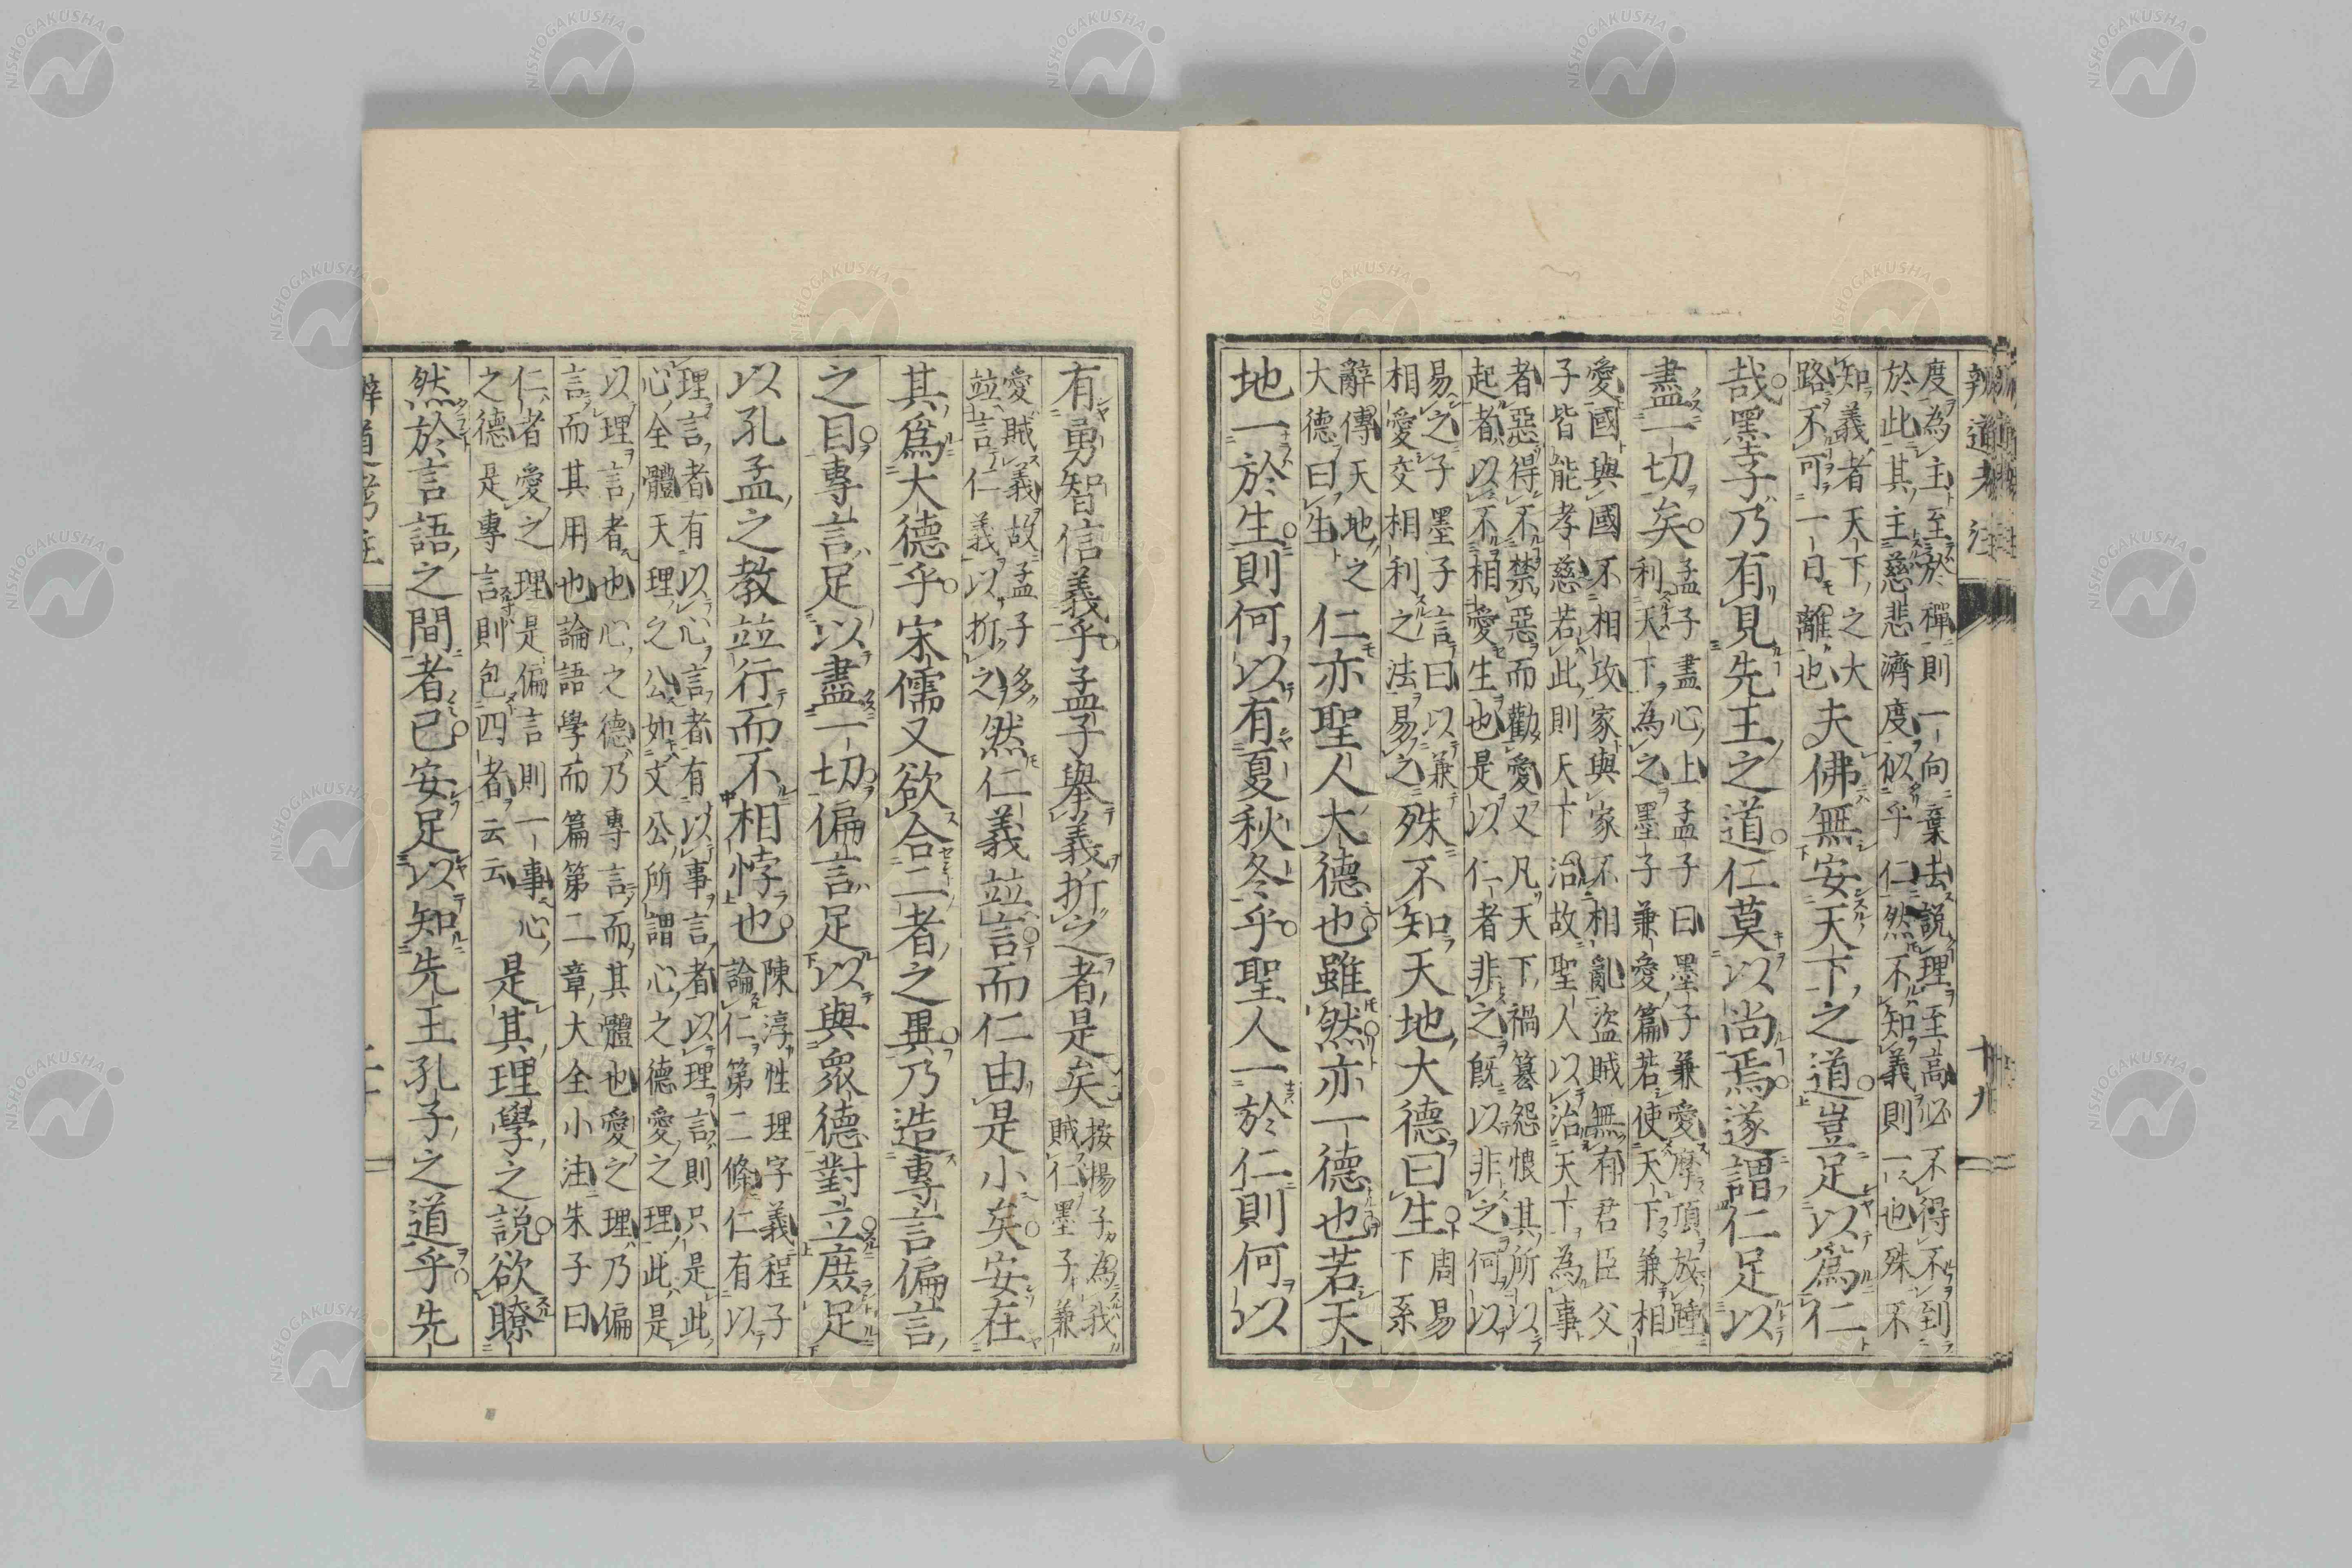 辨道考注 十九
度為主至於禪則一向棄去説理至高必不得不到
於此其主慈悲濟度似乎仁然不知義則一也殊不
知義者天下之大
路不可一日離也
夫佛無安天下之道豈足以爲仁
哉墨子乃有見先王之道仁莫以尚焉遂謂仁足以
盡一切矣
孟子盡心上孟子曰墨子兼愛摩頂放踵
利天下為之墨子兼愛篇若使天下兼相
愛國與國不相攻家與家不相亂盜賊無有君臣父
子皆能孝慈若此則天下治故聖人以治天下為事
者惡得不禁惡而勸愛又凡天下禍簒怨恨其所以
起者以不相愛生也是以仁者非之既以非之何以
易之子墨子言曰以兼
相愛交相利之法易之
殊不知天地大德曰生
周易
下系
辭傳天地之
大德曰生
仁亦聖人大德也雖然亦一德也若天
地一於生則何以有夏秋冬乎聖人一於仁則何以
有勇智信義乎孟子舉義折之者是矣
按楊子為我
賊仁墨子兼
愛賊義故孟子多
竝言仁義以折之
然仁義竝言而仁由是小矣安在
其爲大德乎宋儒又欲合二者之異乃造專言偏言
之目專言足以盡一切偏言足以與衆德對立庶足
以孔孟之教竝行而不相悖也
陳淳性理字義程子
論仁第二條仁有以
理言者有以心言者有以事言者以理言則只是此
心全體天理之公如文公所謂心之德愛之理此是
以理言者也心之德乃專言而其體也愛之理乃偏
言而其用也論語學而篇第二章大全小注朱子曰
仁者愛之理是偏言則一事心
之德是專言則包四者云云
是其理學之説欲瞭
然於言語之間者已安足以知先王孔子之道乎先
辨道考注
NISHOGAKUSHA